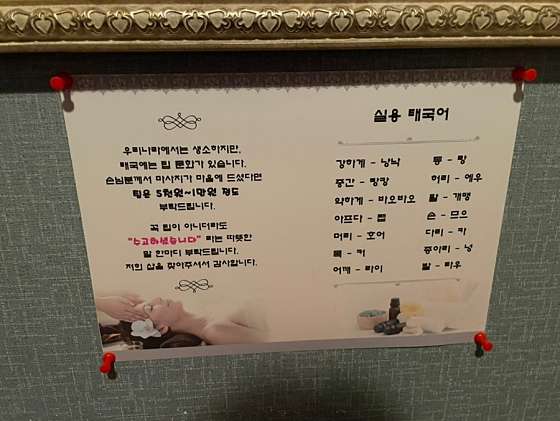 우리나라에서는 생소하지만,
태국에는 팁 문화가 있습니다.
손님분께서 마사지가 마음에 드셨다면
팁을 5천원~1만원 정도
부탁드립니다.
꼭 팁이 아니더라도
"수고하셨습니다" 라는 따뜻한
말 한마디 부탁드립니다.
저희 샵을 찾아주셔서 감사합니다.
실용 태국어
강하게 - 낭낙
중간 - 깡깡
약하게 - 바오바오
아프다 - 쨉
머리 - 호어
목 - 커
어깨 - 라이
등 - 랑
허리 - 에우
팔 - 캔
손 - 므으
다리 - 카
종아리 - 넝
발 - 타우